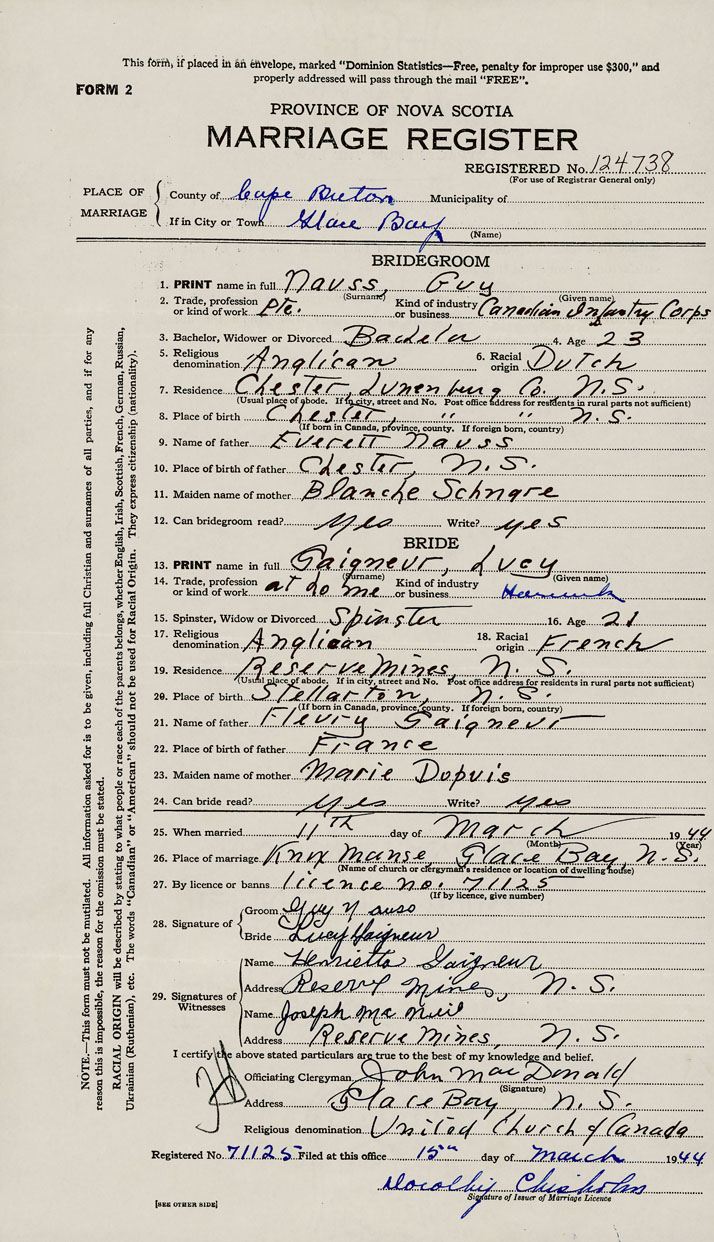 This form, if placed in an envelope, marked "Dominion Statistics—Free, penalty for improper use $300," and
properly addressed will pass through the mail "FREE".
FORM 2
PROVINCE OF NOVA SCOTIA
MARRIAGE REGISTER
REGISTERED No. 124738
(For use of Registrar General only)
PLACE OF MARRIAGE
County of Cape Breton Municipality of
If in City or Town Glace Bay
(Name)
BRIDEGROOM
1. PRINT name in full Nauss, Guy
(Surname) (Given name)
2. Trade, profession or kind of work Pte. Kind of industry or business Canadian Infantry Corps
3. Bachelor, Widower or Divorced Bachelor 4. Age 23
5. Religious denomination Anglican 6. Racial origin Dutch
7. Residence Chester, Lunenburg Co., N.S.
(Usual place of abode. If in city, street and No. Post office address for residents in rural parts not sufficient)
8. Place of birth Chester, " " N.S.
(If born in Canada, province, county. If foreign born, country)
9. Name of father Everett Nauss
10. Place of birth of father Chester, N.S.
11. Maiden name of mother Blanche Schnare
12. Can bridegroom read? yes Write? yes
BRIDE
13. PRINT name in full Gaigneur, Lucy
(Surname) (Given name)
14. Trade, profession or kind of work at home Kind of industry or business
15. Spinster, Widow or Divorced Spinster 16. Age 21
17. Religious denomination Anglican 18. Racial origin French
19. Residence Reserve Mines, N.S.
(Usual place of abode. If in city, street and No. Post office address for residents in rural parts not sufficient)
20. Place of birth Stellarton, N.S.
(If born in Canada, province, county. If foreign born, country)
21. Name of father Fleury Gaigneur
22. Place of birth of father France
23. Maiden name of mother Marie Dopuis
24. Can bride read? yes Write? yes
25. When married 11th day of March 1944
(Month) (Year)
26. Place of marriage Knox Manse, Glace Bay, N.S.
(Name of church or clergyman's residence or location of dwelling house)
27. By licence or banns licence no. 71125
(If by licence, give number)
28. Signature of
Groom Guy Nauss
Bride Lucy Gaigneur
29. Signatures of Witnesses
Name Henrietta Gaigneur
Address Reserve Mines, N.S.
Name Joseph MacNeil
Address Reserve Mines, N.S.
I certify the above stated particulars are true to the best of my knowledge and belief.
Officiating Clergyman John MacDonald
(Signature)
Address Glace Bay, N.S.
Religious denomination United Church of Canada
Registered No. 71125 Filed at this office 15th day of March 1944
Dorothy Chisholm
Signature of Issuer of Marriage Licence
[SEE OTHER SIDE]
NOTE.—This form must not be mutilated. All information asked for is to be given, including full Christian and surnames of all parties, and if for any
reason this is impossible, the reason for the omission must be stated.
RACIAL ORIGIN will be described by stating to what people or race each of the parents belongs, whether English, Irish, Scottish, French, German, Russian,
Ukrainian (Ruthenian), etc. The words "Canadian" or "American" should not be used for Racial Origin. They express citizenship (nationality).